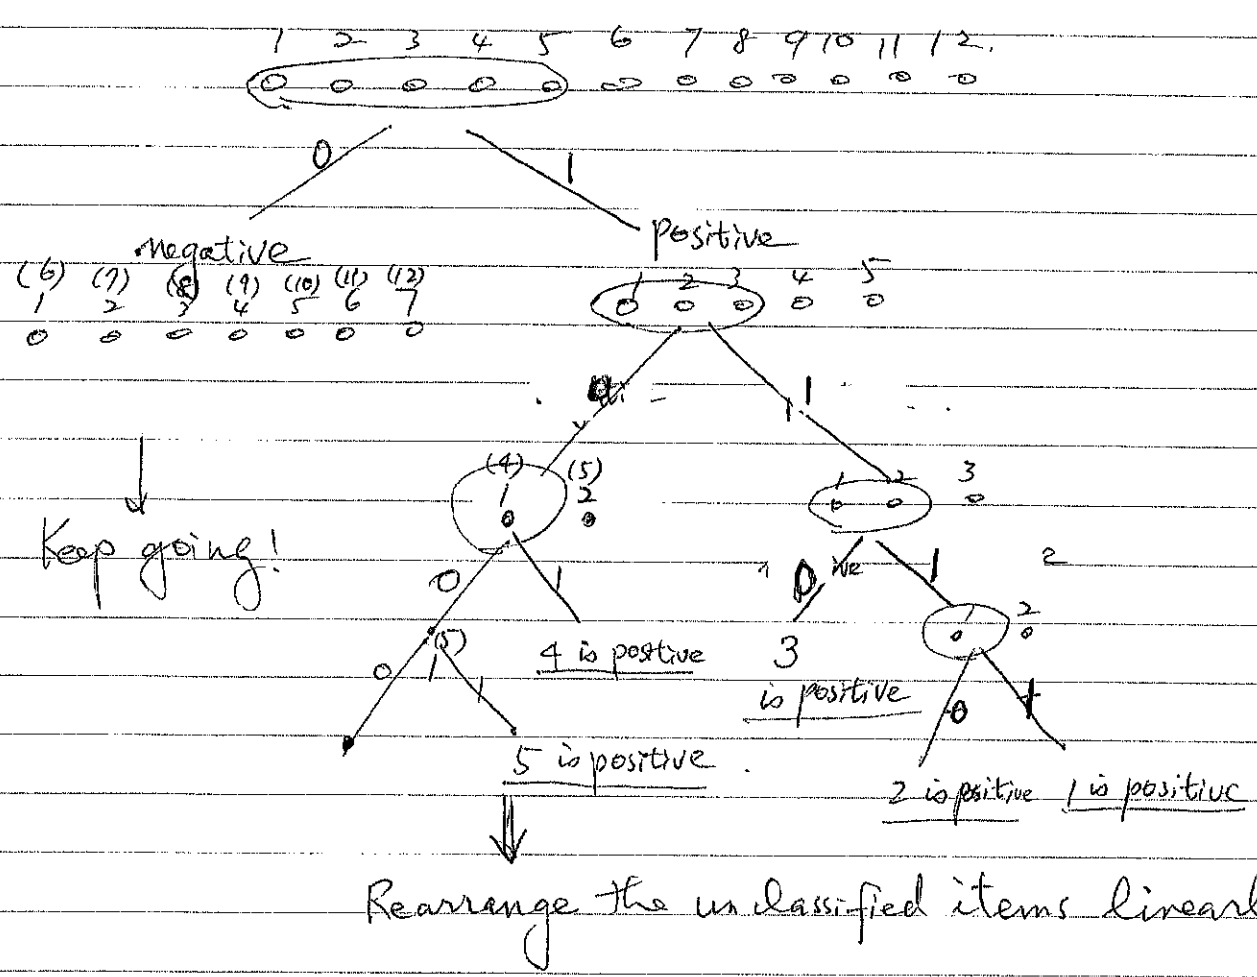 1 2 3 4 5 6 7 8 9 10 11 12.
0 1
negative positive
(6) (7) (8) (9) (10) (11) (12)
1 2 3 4 5 6 7
1 2 3 4 5
0 1
(4) (5)
1 2
1 2 3
Keep going!
0 1
0 1
2
1 2
(5)
1
0 1
4 is positive
3
is positive
0 1
5 is positive.
2 is positive 1 is positive
Rearrange the unclassified items